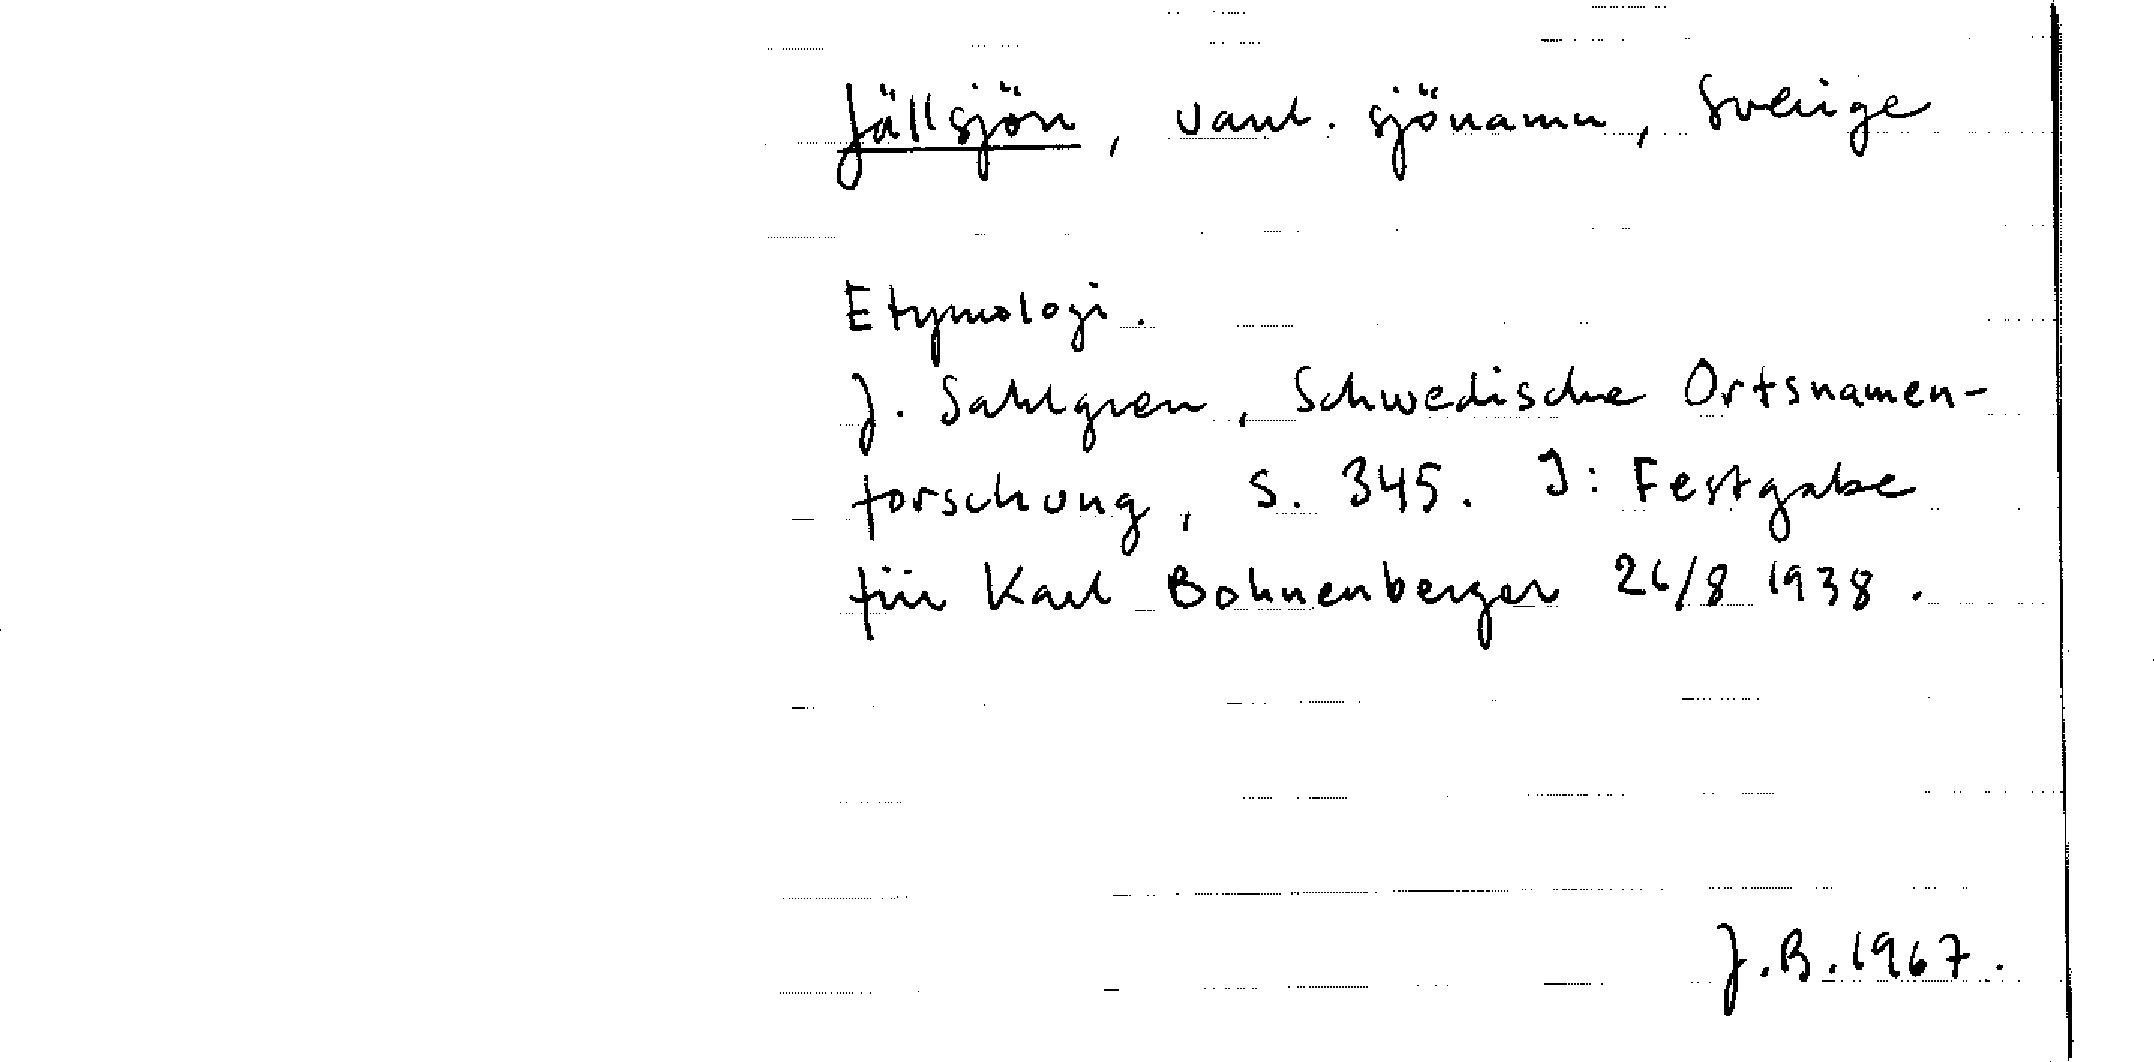 Jällsjön, vanl. sjönamn, Sverige
Etymologi.
J. Sahlgren, Schwedische Ortsnamen-
forschung, s. 345. I: Festgabe
für Karl Bohnenberger 26/8 1938.
J.B. 1967.